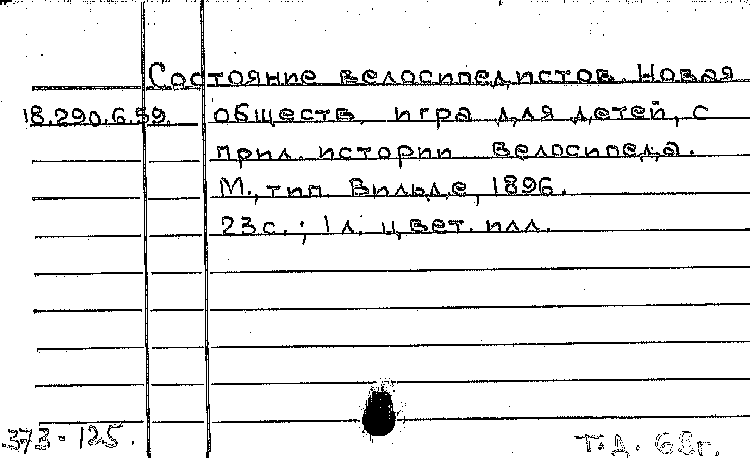 Состояние велосипедистов. Новая
18.290.6.59. обществ. игра для детей, с
прил. истории велосипеда.
М., тип. Вильде, 1896.
23 с.; 1 л. цвет. илл.
373-125. Т.Д. 68г.